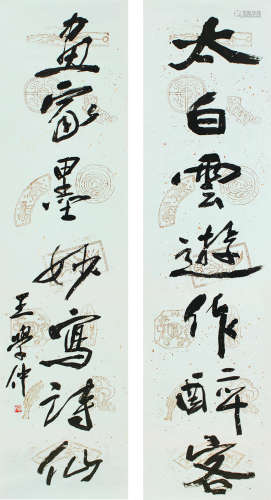 太白雲遊作醉客
畫家墨妙寫詩仙
王學仲